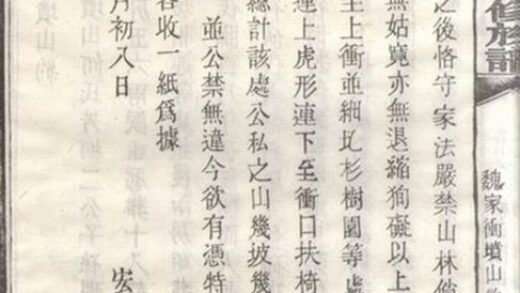 修族譜
魏家衝墳山
之後恪守家法嚴禁山林
無姑寛亦無退縮狥礙以上
至上衝並細圫杉樹園等處
連上虎形連下至衝口扶椅
總計該處公私之山幾坡幾
並公禁無違今欲有憑特
各收一紙爲據
月初八日
宏